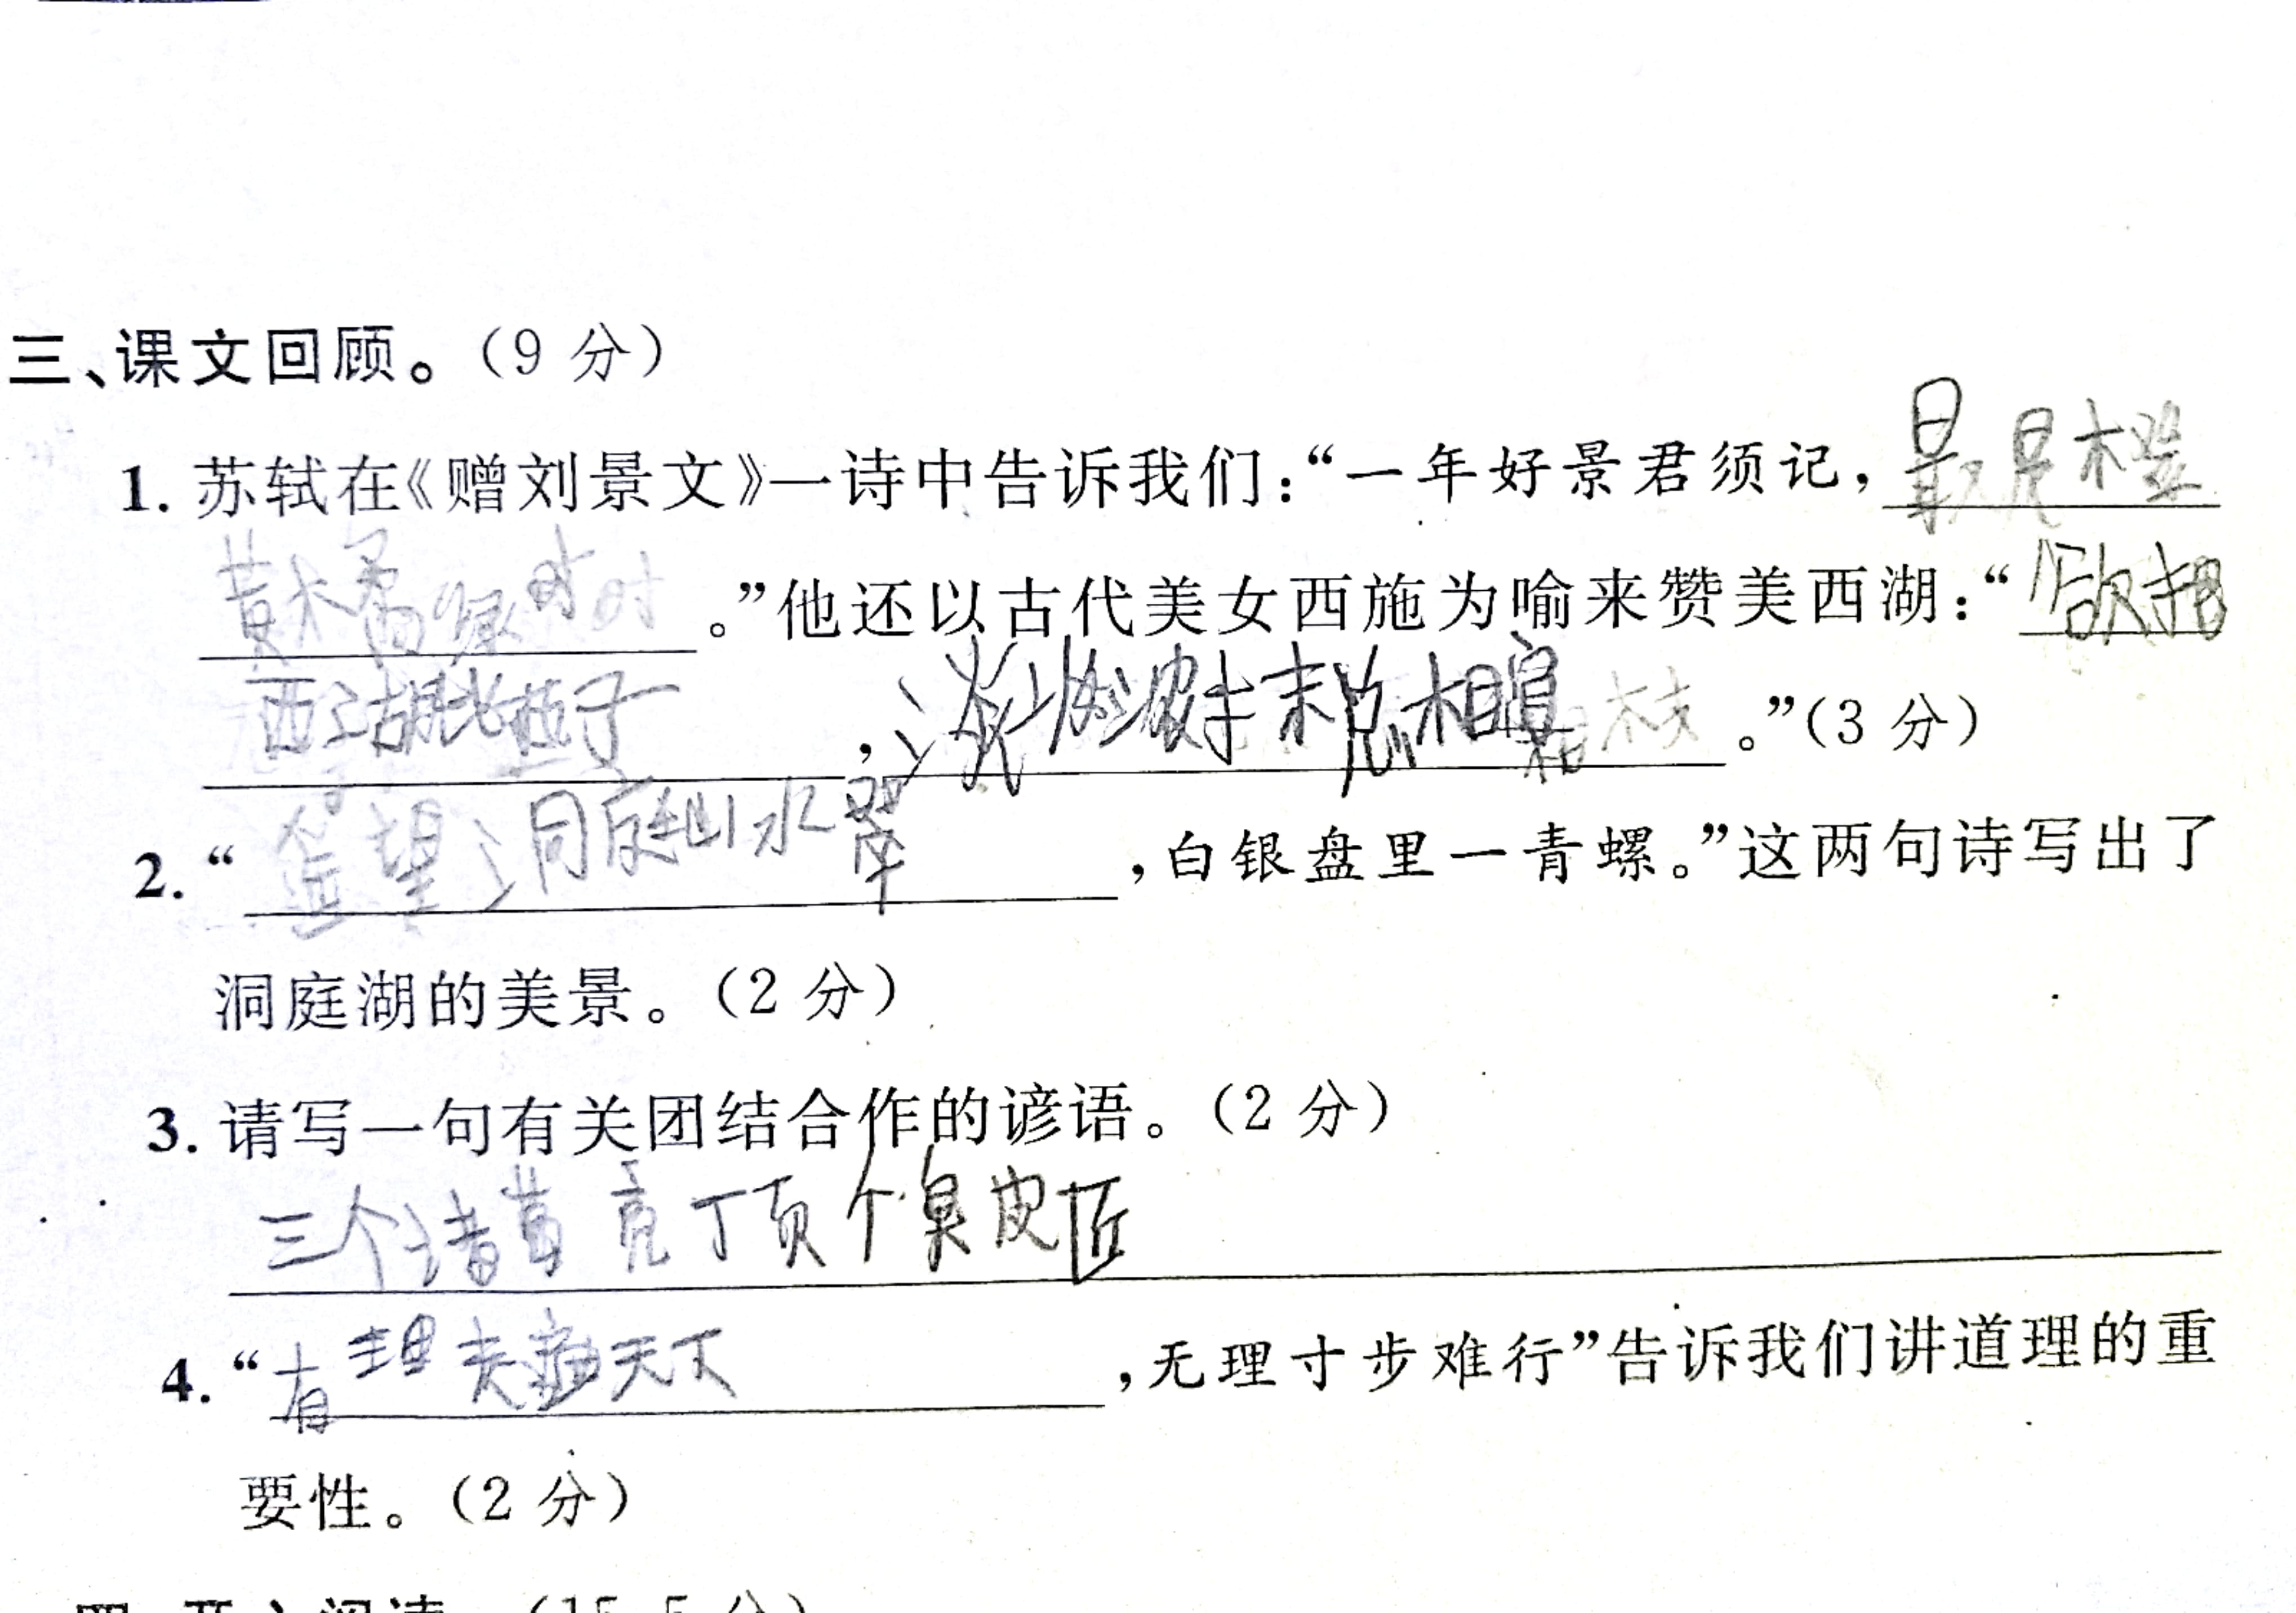 三、课文回顾。(9 分)
1. 苏轼在《赠刘景文》一诗中告诉我们:“一年好景君须记,最是橙
黄橘绿时。”他还以古代美女西施为喻来赞美西湖:“欲把
西湖比西子,淡妆浓抹总相宜。”(3 分)
2. “遥望洞庭山水翠,白银盘里一青螺。”这两句诗写出了
洞庭湖的美景。(2 分)
3. 请写一句有关团结合作的谚语。(2 分)
三个诸葛亮丁页个臭皮匠
4. “有理天下,无理寸步难行”告诉我们讲道理的重
要性。(2 分)